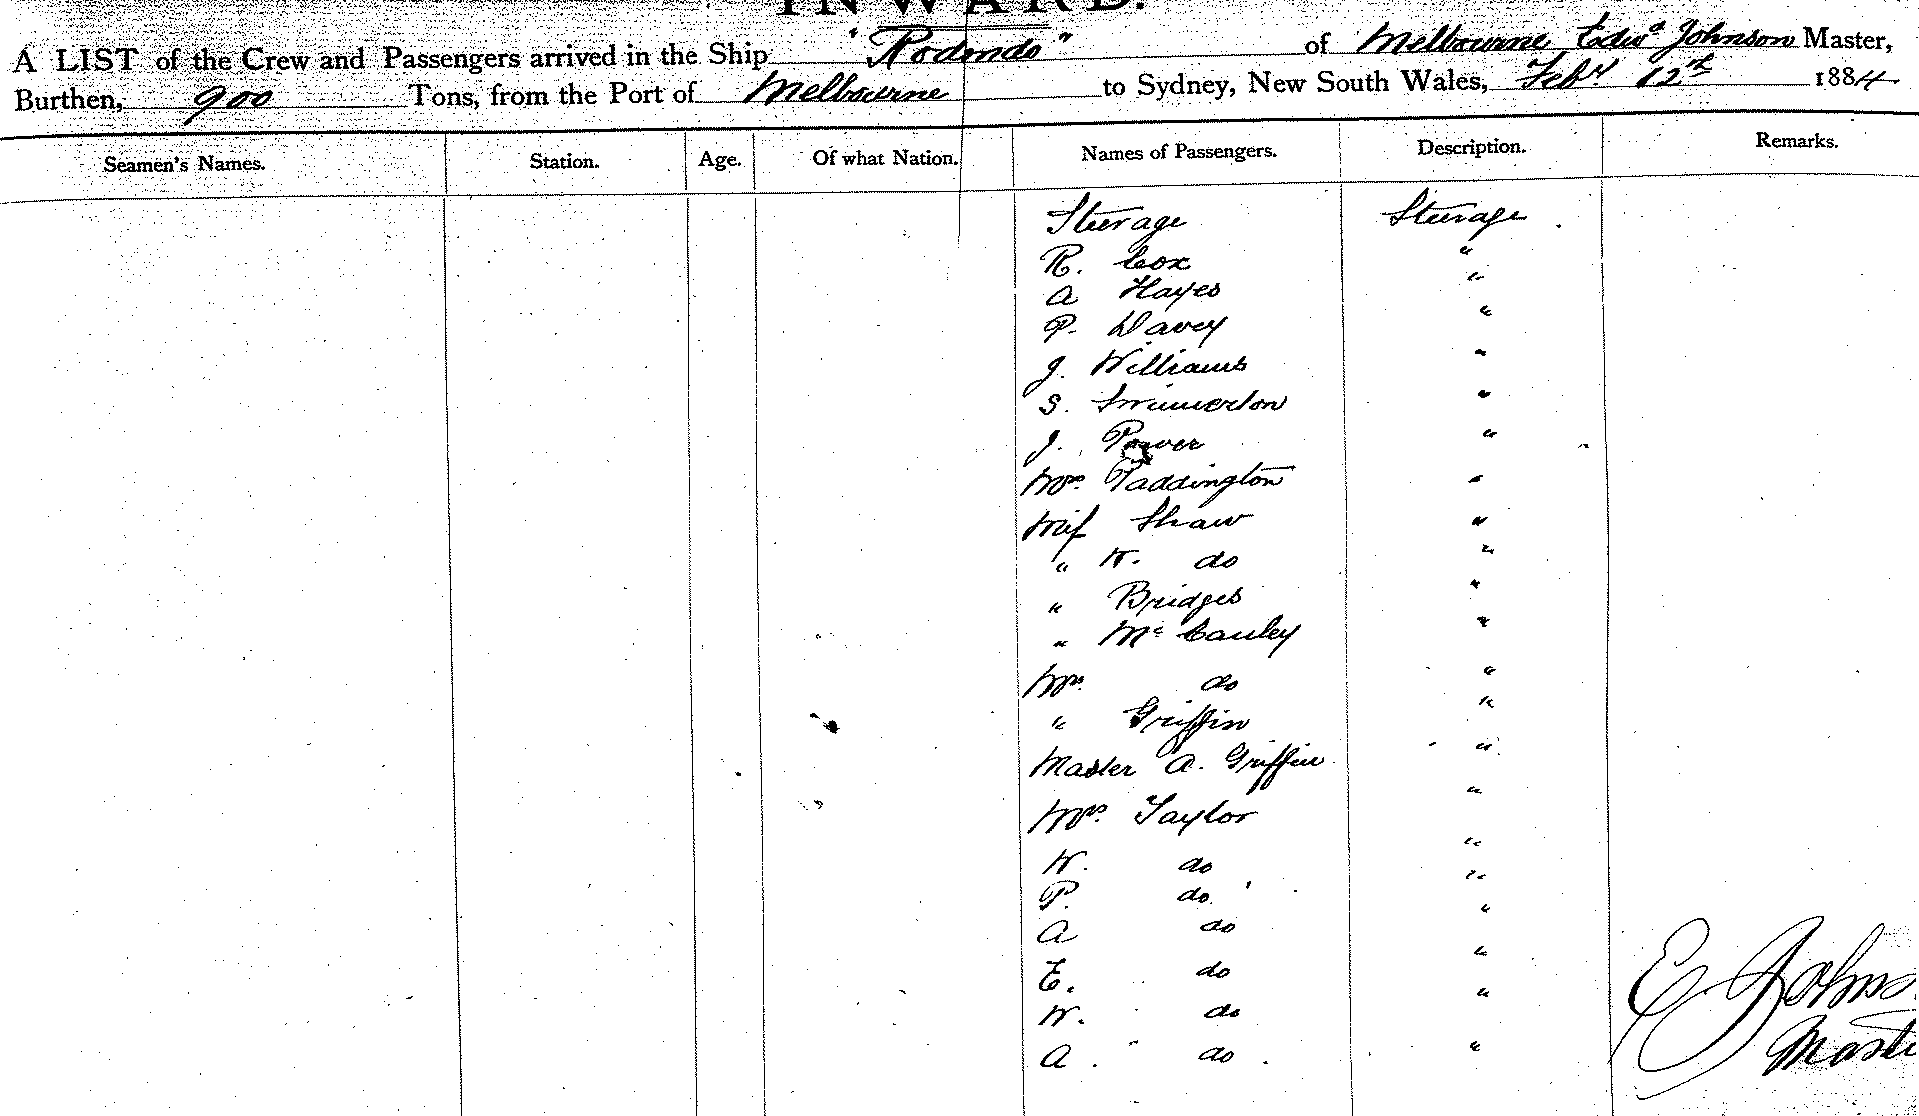 INWARD.
A LIST of the Crew and Passengers arrived in the Ship "Rodondo" of Melbourne Edwd Johnson Master,
Burthen, 900 Tons, from the Port of Melbourne to Sydney, New South Wales, Feby 12th 1884
Seamen's Names. Station. Age. Of what Nation. Names of Passengers. Description. Remarks.
Steerage Steerage
R. Cox "
A Hayes "
P. Davey "
J. Williams "
S. Swinnerton "
J. Power "
Mrs. Paddington "
Miss Shaw "
" W. do "
" Bridges "
" Mc Cauley "
Mrs. do "
" Griffin "
Master A. Griffin "
Mrs. Taylor "
W. do "
P. do "
A do "
E. do "
W. do "
A. do "
E Johns
Maste